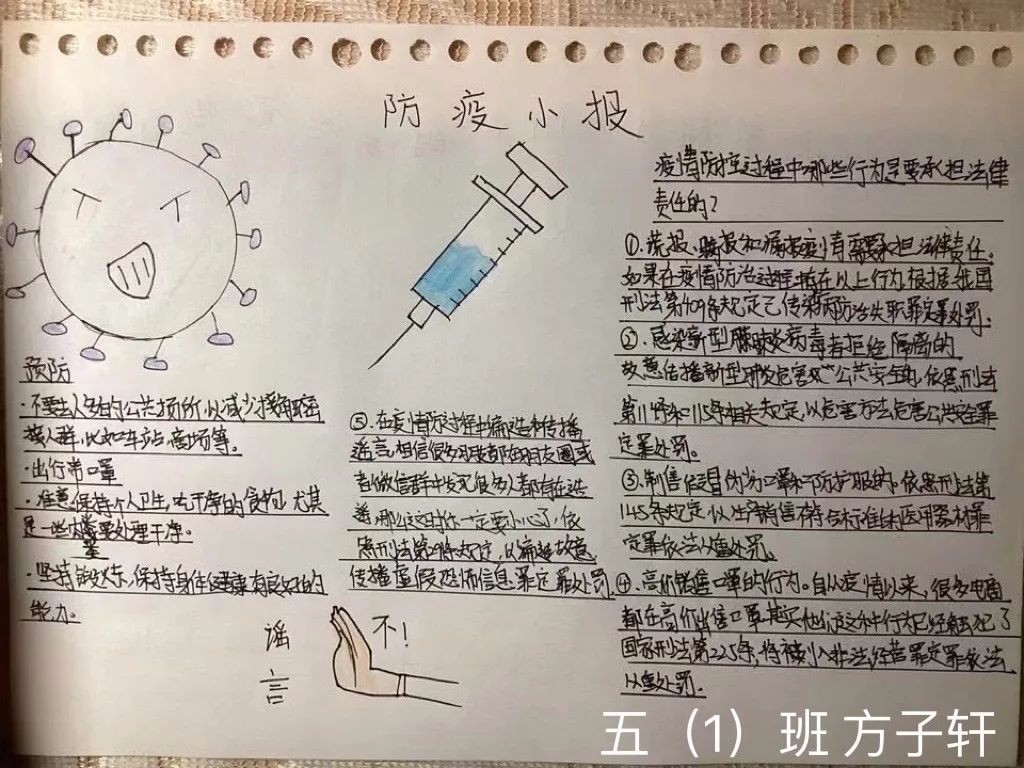 防疫小报
预防
·不要去人多的公共场所,以减少接触密
接人群,比如车站、商场等。
·出行带口罩
·注意保持个人卫生,吃干净的食物,尤其
是一些肉类要处理干净。
·坚持锻炼,保持身体健康有良好的
能力。
疫情防控过程中哪些行为是要承担法律
责任的?
①.谎报、瞒报和漏报疫情需要承担法律责任。
如果在疫情防治过程 存在以上行为,根据我国
刑法第409条规定已传染病防治失职罪定罪处罚。
②.感染新型肺炎病毒者拒绝隔离的
故意传播新型 危害 公共安全的,依照刑法
第114条和115条相关规定,以危害方法危害公共安全罪
定罪处罚。
③.制售假冒伪劣口罩和防护服的,依照刑法第
145条规定,以生产销售不符合标准的医用器材罪
定罪依法从重处罚。
④.高价销售口罩的行为。自从疫情以来,很多电商
都在高价出售口罩,其实他们这种行为已经触犯了
国家刑法第225条,将被列入非法经营罪定罪依法
从重处罚。
⑤.在疫情防 过程中编造和传播
谣言,相信很多 都在朋友圈或
者微信群中发现很多人都有在造
谣,那么这时你一定要小心了,依
照刑法第291条规定,以编造故意
传播虚假恐怖信息罪定罪处罚。
谣
言
不!
五(1)班 方子轩